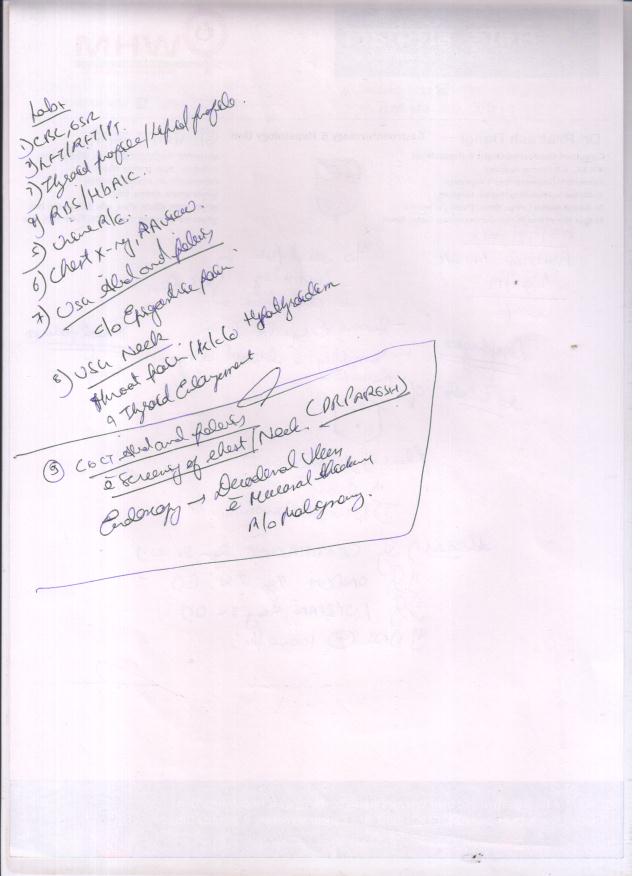 Labs
1) CBC, ESR
2) LFT/RFT/PT.
3) Thyroid profile/Lipid profile.
4) RBS/HbA1C.
5) Urine R/E.
6) Chest X-ray, PA view.
7) USG Abd and pelvis
c/o Epigastric pain.
8) USG Neck
throat pain/K/c/o Hypothyroidism
? Thyroid Enlargement
9) CECT Abd and pelvis
c̄ Screening of chest/Neck. (DR PARESH)
Endoscopy → Duodenal Ulcer
c̄ Mucosal thickening
R/o Malignancy.